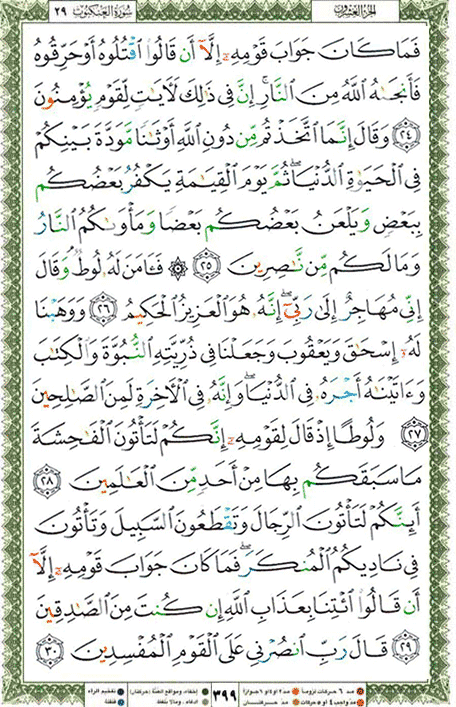 سُورَةُ الْعَنكَبُوت ٢٩
الجُزْءُ العِشْرُونَ
فَمَا كَانَ جَوَابَ قَوْمِهِۦٓ إِلَّآ أَن قَالُوا۟ ٱقْتُلُوهُ أَوْ حَرِّقُوهُ
فَأَنجَىٰهُ ٱللَّهُ مِنَ ٱلنَّارِ ۚ إِنَّ فِى ذَٰلِكَ لَـَٔايَـٰتٍ لِّقَوْمٍ يُؤْمِنُونَ
﴿٢٤﴾ وَقَالَ إِنَّمَا ٱتَّخَذْتُم مِّن دُونِ ٱللَّهِ أَوْثَـٰنًا مَّوَدَّةَ بَيْنِكُمْ
فِى ٱلْحَيَوٰةِ ٱلدُّنْيَا ۖ ثُمَّ يَوْمَ ٱلْقِيَـٰمَةِ يَكْفُرُ بَعْضُكُم
بِبَعْضٍ وَيَلْعَنُ بَعْضُكُم بَعْضًا وَمَأْوَىٰكُمُ ٱلنَّارُ
وَمَا لَكُم مِّن نَّـٰصِرِينَ ﴿٢٥﴾ ۞ فَـَٔامَنَ لَهُۥ لُوطٌ ۘ وَقَالَ
إِنِّى مُهَاجِرٌ إِلَىٰ رَبِّىٓ ۖ إِنَّهُۥ هُوَ ٱلْعَزِيزُ ٱلْحَكِيمُ ﴿٢٦﴾ وَوَهَبْنَا
لَهُۥٓ إِسْحَـٰقَ وَيَعْقُوبَ وَجَعَلْنَا فِى ذُرِّيَّتِهِ ٱلنُّبُوَّةَ وَٱلْكِتَـٰبَ
وَءَاتَيْنَـٰهُ أَجْرَهُۥ فِى ٱلدُّنْيَا ۖ وَإِنَّهُۥ فِى ٱلْـَٔاخِرَةِ لَمِنَ ٱلصَّـٰلِحِينَ
﴿٢٧﴾ وَلُوطًا إِذْ قَالَ لِقَوْمِهِۦٓ إِنَّكُمْ لَتَأْتُونَ ٱلْفَـٰحِشَةَ
مَا سَبَقَكُم بِهَا مِنْ أَحَدٍ مِّنَ ٱلْعَـٰلَمِينَ ﴿٢٨﴾
أَئِنَّكُمْ لَتَأْتُونَ ٱلرِّجَالَ وَتَقْطَعُونَ ٱلسَّبِيلَ وَتَأْتُونَ
فِى نَادِيكُمُ ٱلْمُنكَرَ ۖ فَمَا كَانَ جَوَابَ قَوْمِهِۦٓ إِلَّآ
أَن قَالُوا۟ ٱئْتِنَا بِعَذَابِ ٱللَّهِ إِن كُنتَ مِنَ ٱلصَّـٰدِقِينَ
﴿٢٩﴾ قَالَ رَبِّ ٱنصُرْنِى عَلَى ٱلْقَوْمِ ٱلْمُفْسِدِينَ ﴿٣٠﴾
مد ٦ حركات لزوماً مد ٢ او ٤ او ٦ جوازاً
مد واجب ٤ او ٥ حركات مد حركتان
٣٩٩
إخفاء، ومواقع الغنة (حركتان) تفخيم الراء
ادغام، وما لا يلفظ قلقلة